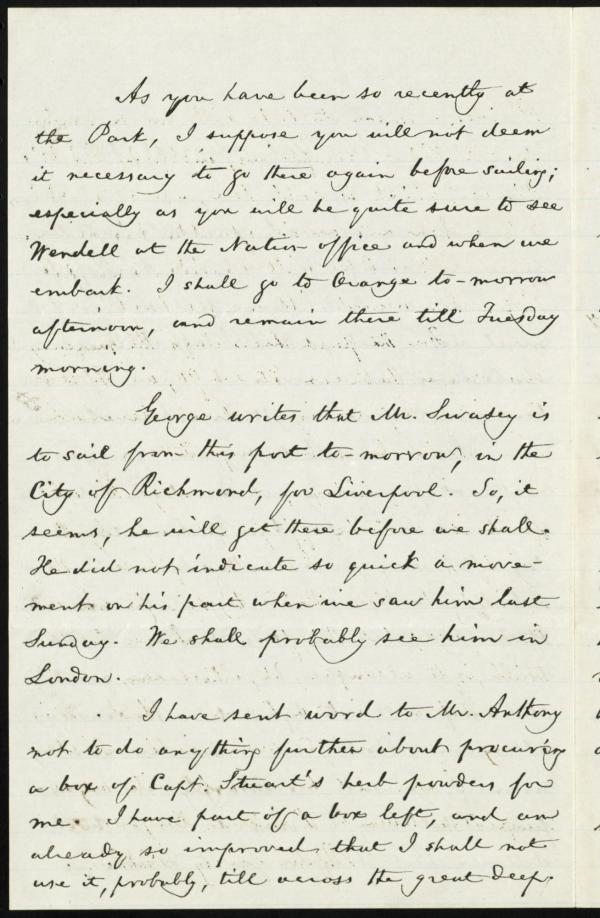 As you have been so recently at
the Park, I suppose you will not deem
it necessary to go there again before sailing;
especially as you will be quite sure to see
Wendell at the Nation office and when we
embark. I shall go to Orange to-morrow
afternoon, and remain there till Tuesday
morning.
George writes that Mr. Swasey is
to sail from this port to-morrow, in the
City of Richmond, for Liverpool. So, it
seems, he will get there before we shall.
He did not indicate so quick a move-
ment on his part when we saw him last
Sunday. We shall probably see him in
London.
I have sent word to Mr. Anthony
not to do anything further about procuring
a box of Capt. Stuart's herb powders for
me. I have part of a box left, and am
already so improved that I shall not
use it, probably, till across the great deep.